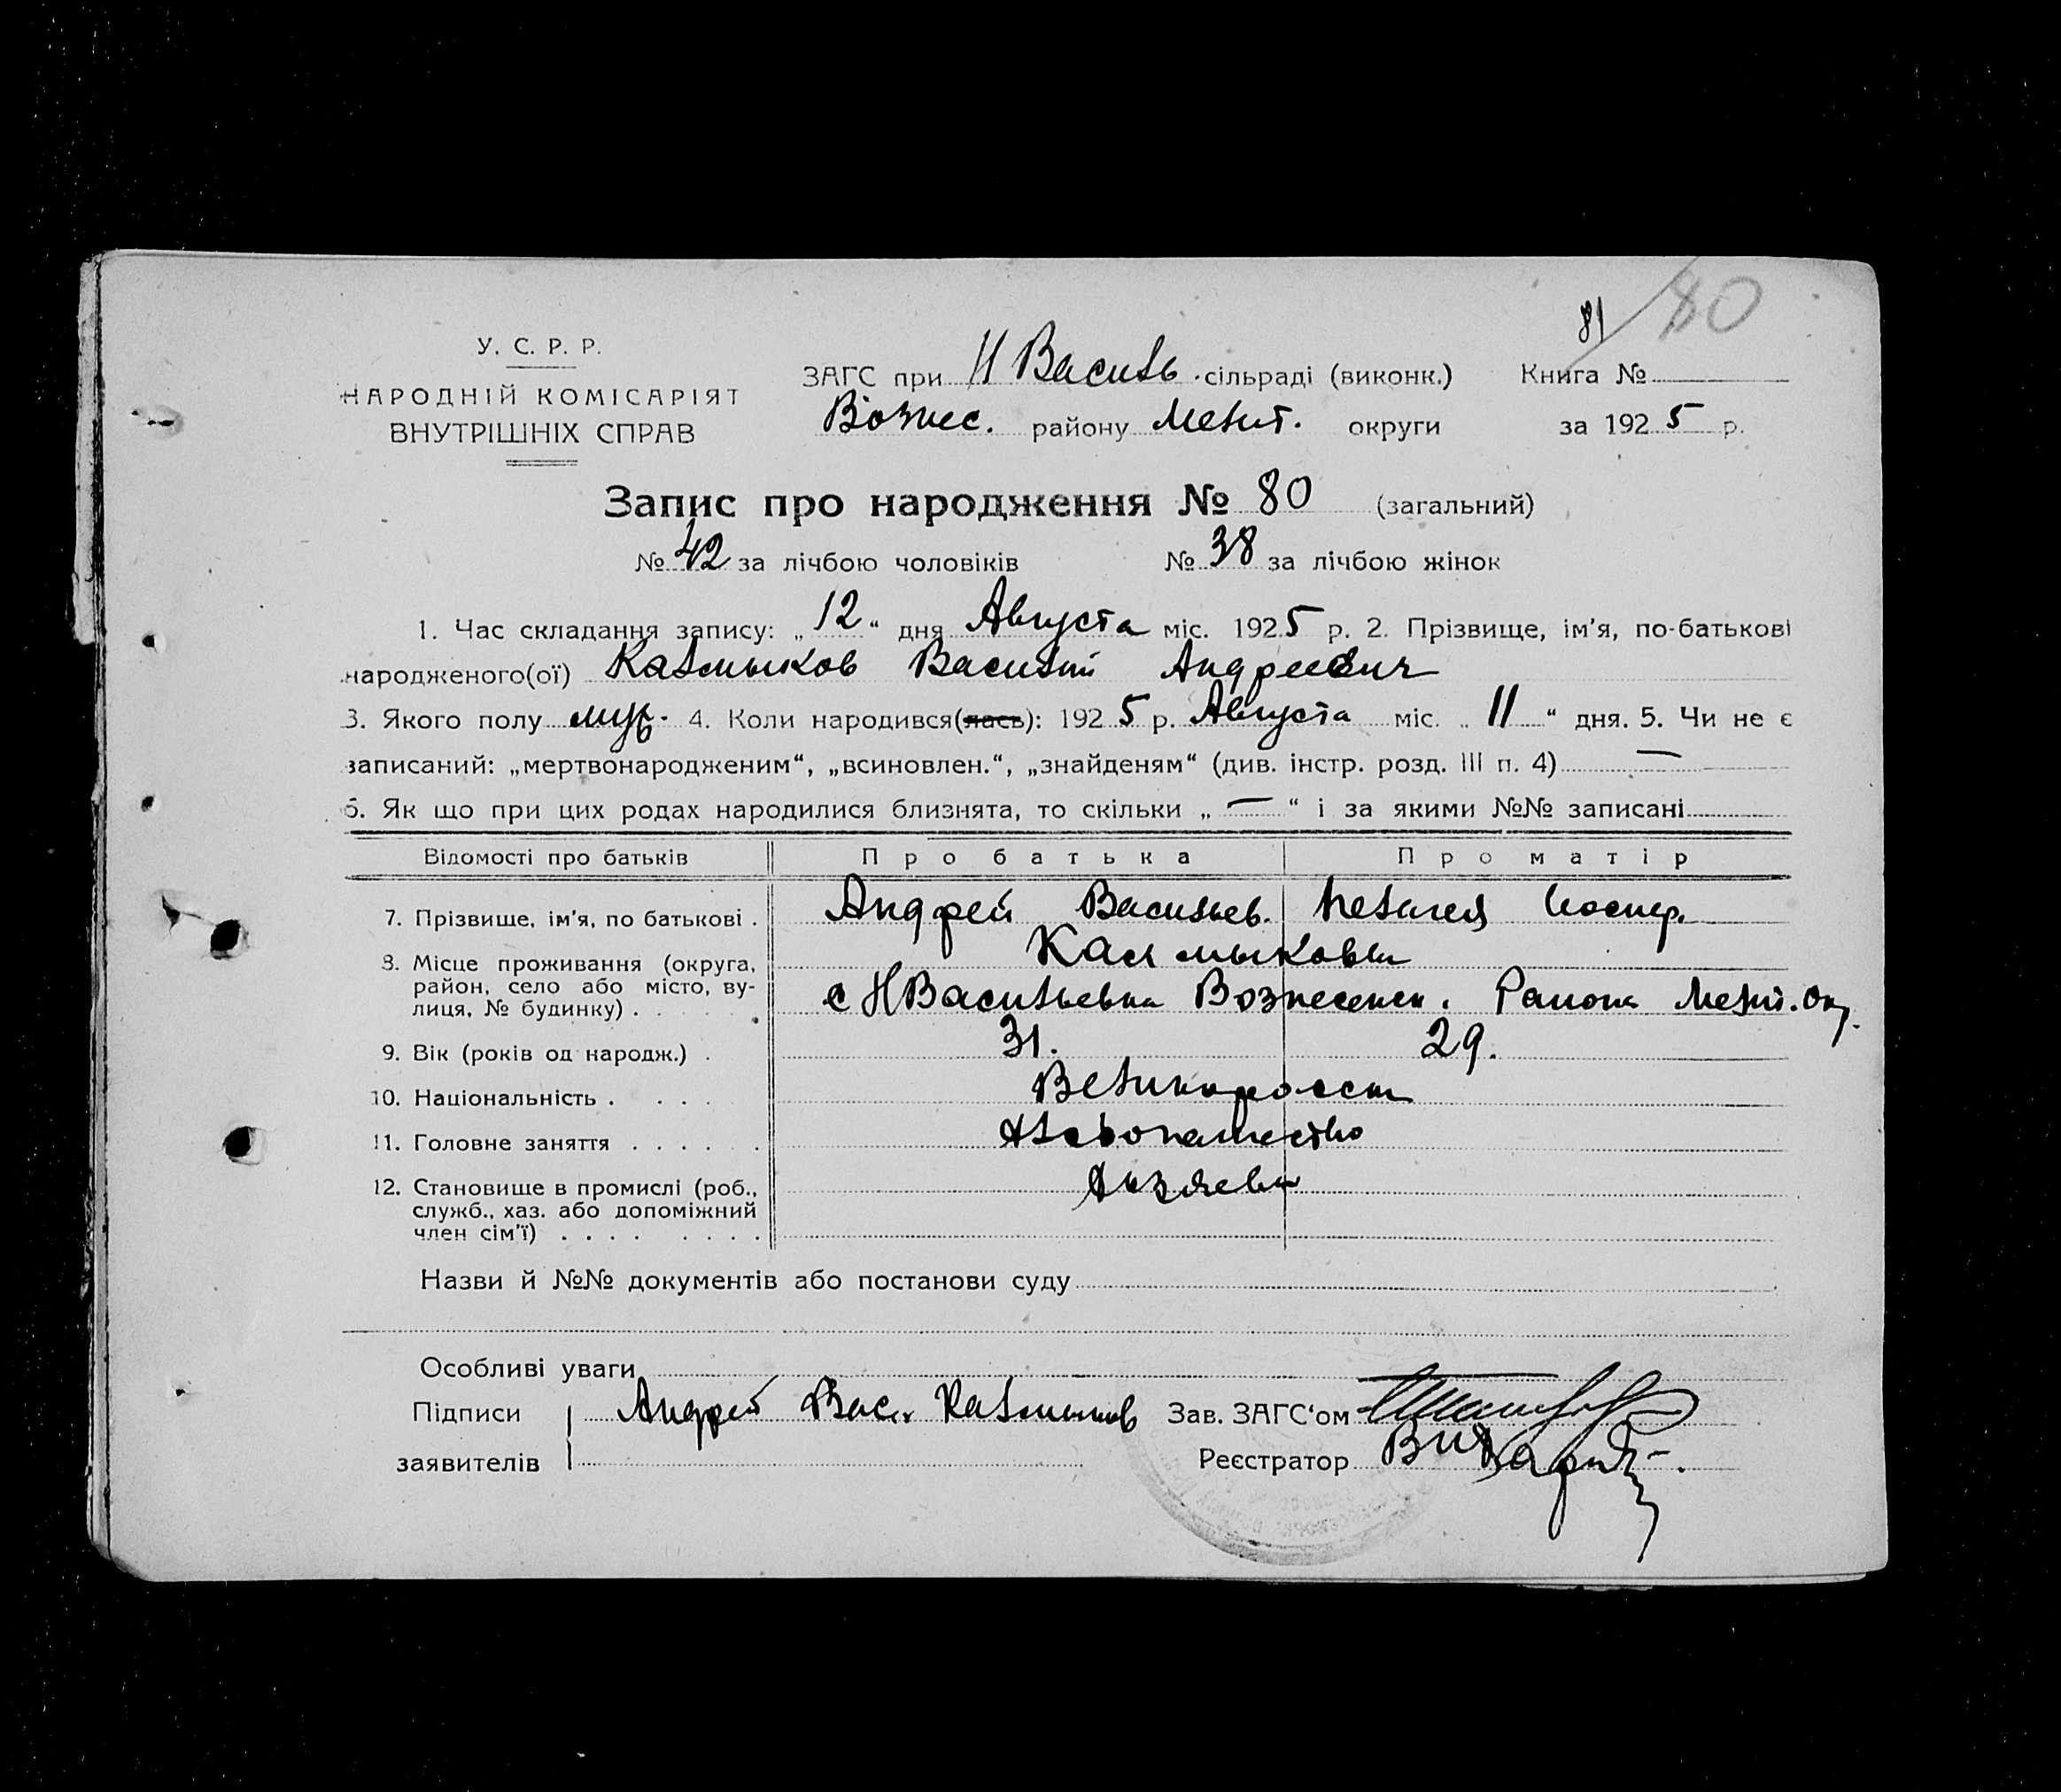 81 / 80
У. С. Р. Р.
НАРОДНІЙ КОМІСАРІЯТ
ВНУТРІШНІХ СПРАВ
ЗАГС при Н Василь. сільраді (виконк.) Книга №
Вознес. району Мелит. округи за 1925 р.
Запис про народження № 80 (загальний)
№ 42 за лічбою чоловіків № 38 за лічбою жінок
1. Час складання запису: „12“ дня Августа міс. 1925 р. 2. Прізвище, ім'я, по-батькові
народженого(ої) Калмыков Василий Андреевич
3. Якого полу муж. 4. Коли народився(лась): 1925 р. Августа міс. „11“ дня. 5. Чи не є
записаний: „мертвонародженим“, „всиновлен.“, „знайденям“ (див. інстр. розд. III п. 4) —
6. Як що при цих родах народилися близнята, то скільки „—“ і за якими №№ записані
Відомості про батьків Про батька Про матір
7. Прізвище, ім'я, по батькові . Андрей Васильев. Пелагея Иосиф.
Калмыковы
8. Місце проживання (округа,
район, село або місто, ву-
лиця, № будинку) . с НВасильевка Вознесенск. Района Мелит. Окр.
9. Вік (років од народж.) . 31. 29.
10. Національність . . . . Великороссы
11. Головне заняття . . . . . . Хлебопашество
12. Становище в промислі (роб.,
служб., хаз. або допоміжний
член сім'ї) . . . . . . . . Хозяева
Назви й №№ документів або постанови суду
Особливі уваги
Підписи Андрей Вас. Калмыков Зав. ЗАГС'ом
заявителів Реєстратор